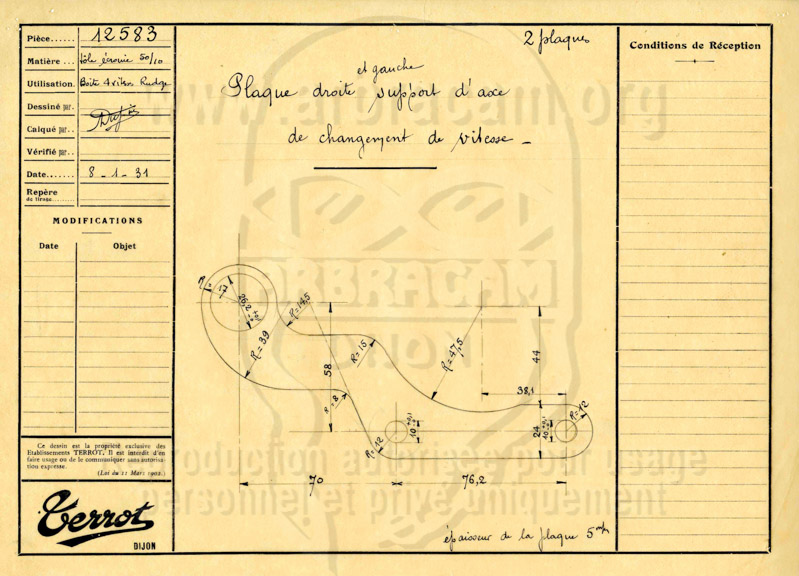 Pièce... 12583
Matière... tôle écrouie 50/10
Utilisation. Boîte 4 vites Rudge
Dessiné par.
Calqué par..
Vérifié par..
Date....... 8-1-31
Repère
de tirage.........
MODIFICATIONS
Date Objet
2 plaques
et gauche
Plaque droite support d'axe
de changement de vitesse -
Conditions de Réception
www.arbracam.org
ARBRACAM
DIJON
26,2
R=14,5
R=39
R=15
R=47,5
58
44
38,1
R=8
R=12
10 +0,1
24
10 +0,1
R=12
70
76,2
épaisseur de la plaque 5 m/m
Reproduction autorisée pour usage
personnel et privé uniquement
Ce dessin est la propriété exclusive des
Etablissements TERROT. Il est interdit d'en
faire usage ou de le communiquer sans autorisa-
tion expresse.
(Loi du 11 Mars 1902.)
Terrot
DIJON